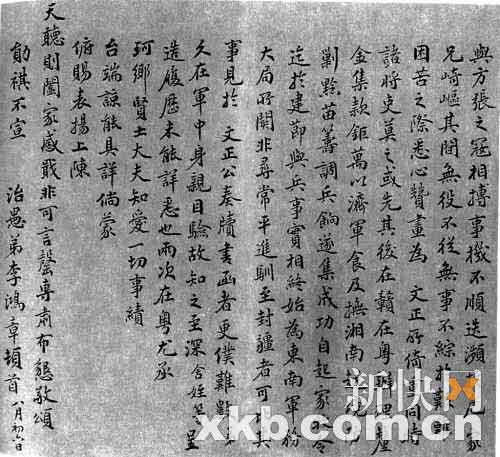 與方張之寇相搏事機不順迭瀕於危家
兄崎嶇其間無役不從無事不綜於艱難
困苦之際悉心贊畫為 文正所倚重同時
諸將吏莫之或先其後在贛在粵辦理釐
金集款鉅萬以濟軍食及撫湘南
剿黔苗籌調兵餉遂集成功自起家 令
迄於建節與兵事實相終始為東南軍務
大局所關非尋常平進馴至封疆者可比其
事見於 文正公奏牘書函者更僕難數弟
久在軍中身親目驗故知之至深舍姪等呈
造履歷未能詳悉也兩次在粵尤承
珂鄉賢士大夫知愛一切事績
台端諒能具詳倘蒙
俯賜表揚上陳
天聽則闔家感戴非可言罄專肅布懇敬頌
勛祺不宣 治愚弟李鴻章頓首 八月初六日
新快网
xkb.com.cn